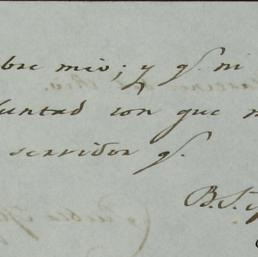 bre mio; y q.e mi
luntad con que m
servidor q.
B. S.